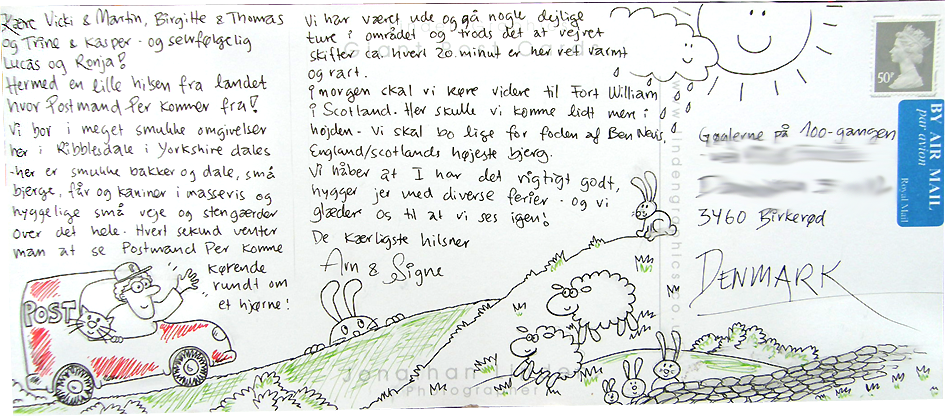 Kære Vicki & Martin, Birgitte & Thomas
og Trine & Kasper - og selvfølgelig
Lucas og Ronja!
Hermed en lille hilsen fra landet
hvor Postmand Per kommer fra!
Vi bor i meget smukke omgivelser
her i Ribblesdale i Yorkshire dales
- her er smukke bakker og dale, små
bjerge, får og kaniner i massevis og
hyggelige små veje og stengærder
over det hele. Hvert sekund venter
man at se Postmand Per komme
kørende
rundt om
et hjørne!
POST
Vi har været ude og gå nogle dejlige
ture i området og trods det at vejret
skifter ca. hvert 20. minut er her ret varmt
og rart.
i morgen skal vi køre videre til Fort William
i Scotland. Her skulle vi komme lidt mere i
højden - Vi skal bo lige for foden af Ben Nevis,
England/scotlands højeste bjerg.
Vi håber at I har det rigtigt godt,
hygger jer med diverse ferier - og vi
glæder os til at vi ses igen!
De kærligste hilsner
Arn & Signe
50P
BY AIR MAIL
par avion
Royal Mail
Gøglerne på 100-gangen
3460 Birkerød
DENMARK